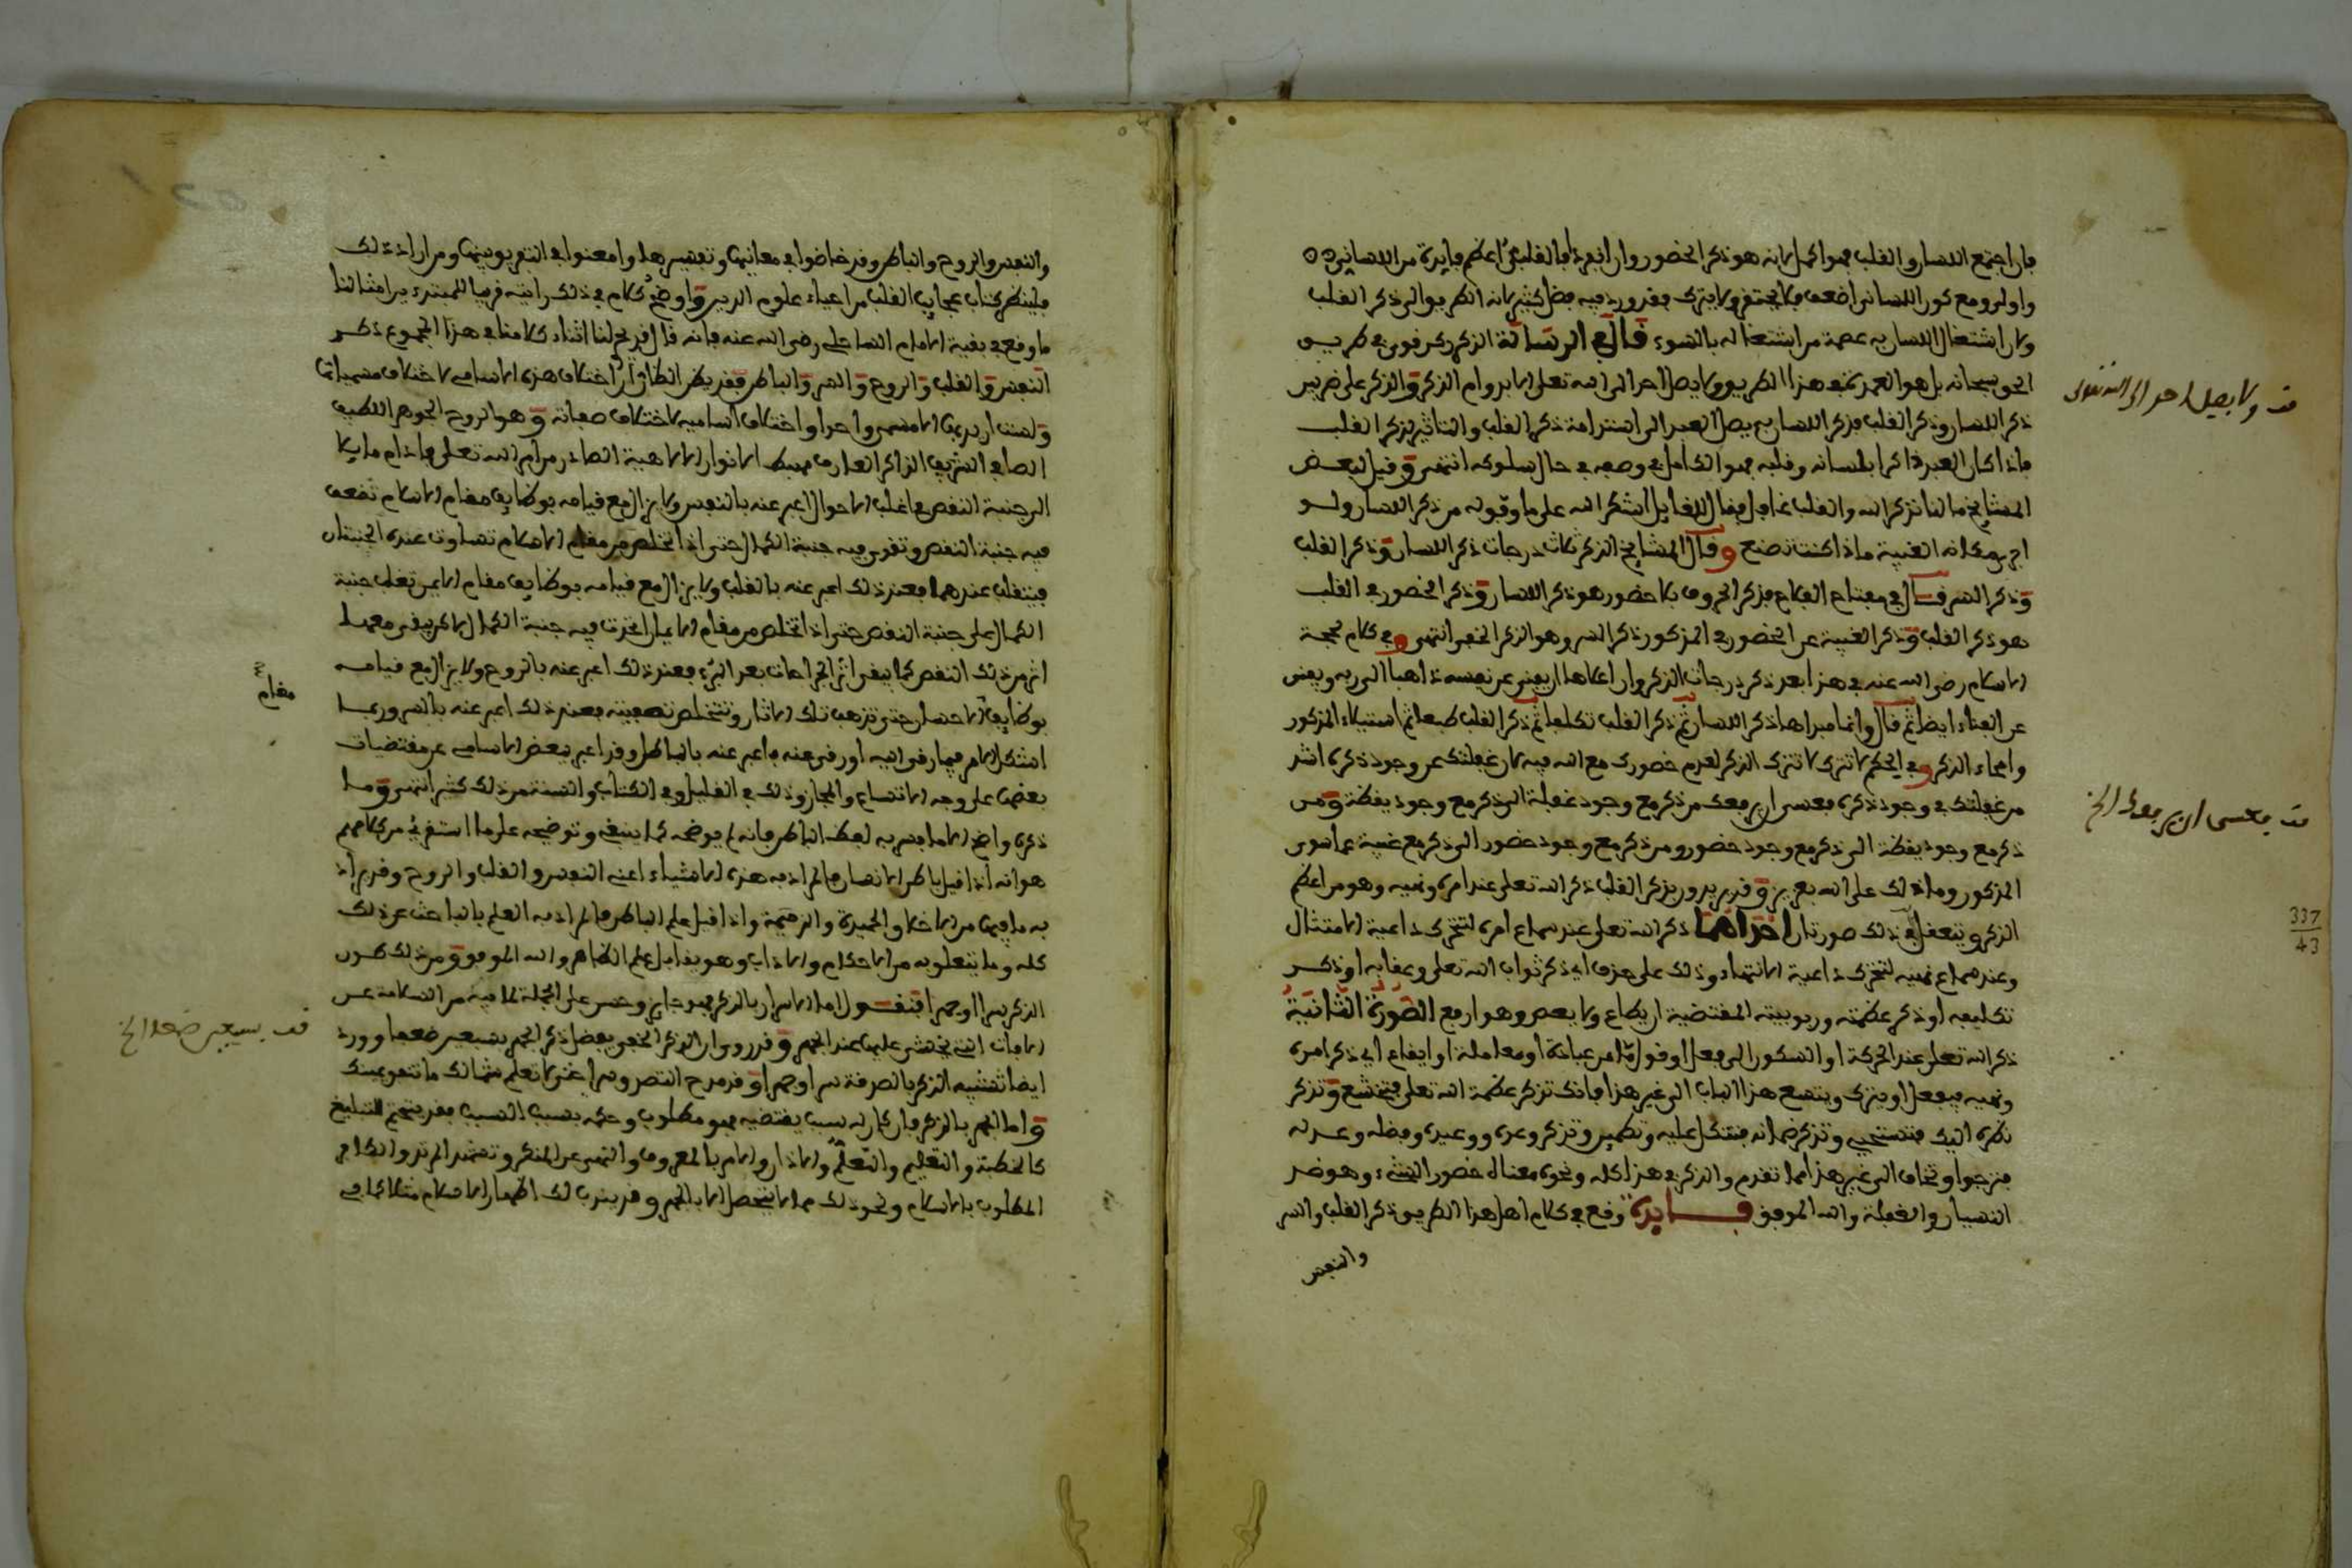 فإن اجتمع اللسان والقلب فهو أكمل لأنه هو ذكر الحضور وإن انفرد فالقلبي أعظم فايدة من اللساني
وأولى ومع كون اللساني أضعف فلا يحتقر ولا يترك فقد ورد فيه فضل كثير لأنه الطريق إلى ذكر القلب
ولأن اشتغال اللسان به عصمة من اشتغاله بالسوء قال في الرسالة الذكر ركن قوي في طريق
الحق سبحانه بل هو العمدة في هذا الطريق ولا يصل أحد إلى الله تعلى إلا بدوام الذكر والذكر على ضربين
ذكر اللسان وذكر القلب فذكر اللسان به يصل العبد إلى استدامة ذكر القلب والتأثير لذكر القلب
فإذا كان العبد ذاكرا بلسانه وقلبه فهو الكامل في وصفه في حال سلوكه انتهى وقيل لبعض
المشايخ ما لنا نذكر الله والقلب غافل فقال للقايل اشكر الله على ما وفق له من ذكر اللسان ولو
أجرى مكانه الغيبة ماذا كنت تصنع وقال المشايخ الذكر ثلاث درجات ذكر اللسان وذكر القلب
وذكر السر قال في مفتاح الفلاح فذكر الحروف بلا حضور هو ذكر اللسان وذكر الحضور في القلب
هو ذكر القلب وذكر الغيبة عن الحضور في المذكور ذكر السر وهو الذكر الخفي انتهى وفي كلام حجة
الاسلام رضي الله عنه في هذا بعد ذكر درجات الذكر وان أعلاها أن يفنى عن نفسه ذاهبا إلى ربه ويفنى
عن الفناء أيضا ثم قال وإنما مبدأها ذكر اللسان ثم ذكر القلب تكلفا ثم ذكر القلب طبعا ثم استيلاء المذكور
وامحاء الذكر وفي الحكم لا تترك الذكر لعدم حضورك مع الله فيه لأن غفلتك عن وجود ذكره أشد
من غفلتك في وجود ذكره فعسى أن يرفعك من ذكر مع وجود غفلة إلى ذكر مع وجود يقظة ومن
ذكر مع وجود يقظة إلى ذكر مع وجود حضور ومن ذكر مع وجود حضور إلى ذكر مع غيبة عما سوى
المذكور وما ذلك على الله بعزيز وقد يريدون بذكر القلب ذكر الله تعلى عند أمره ونهيه وهو من أعظم
الذكر ويتعقل في ذلك صورتان إحداهما ذكر الله تعلى عند سماع أمره لتتحرك داعية الامتثال
وعند سماع نهيه لتتحرك داعية الانتهاء وذلك على حذف أي ذكر ثواب الله تعلى وعقابه أو ذكر
تكليفه أو ذكر عظمته وربوبيته المقتضية أن يطاع ولا يعصى وهو أرفع الصورة الثانية
ذكر الله تعلى عند الحركة أو السكون إلى فعل أو قول إما من عبادة أو معاملة أو إيقاع أي ذكر أمره
ونهيه فيفعل أو يترك ويتسع هذا الباب إلى غير هذا فإنك تذكر عظمة الله تعلى فتخشع وتذكر
نظره إليك فتستحيي وتذكر ضمانه فتتكل عليه وتطمئن وتذكر وعده ووعيده وفضله وعدله
فترجو وتخاف إلى غير هذا مما تقدم والذكر في هذا كله ونحوه معناه حضور الشيء وهو ضد
النسيان والغفلة والله الموفق فايدة وقع في كلام أهل هذا الطريق ذكر القلب والسر
والنفس
قف ولا يصل احد الى الله تعلى
قف فعسى ان يرفعك الخ
337
43
والنفس والروح والباطن وقد خاضوا في معانيها وتفسيرها وأمعنوا في التفريق بينها ومن أراد ذلك
فلينظر كتاب عجايب القلب من احياء علوم الدين وأوضح كلام في ذلك رايته قريبا للمبتدي من أمثالنا
ما وقع في بغية الامام الساحلي رضي الله عنه فإنه قال قد جرى لنا أثناء كلامنا في هذا المجموع ذكر
النفس والقلب والروح والسر والباطن فقد يظن الظان أن اختلاف هذه الاسامي لاختلاف مسمياتها
وليست إلا مسمى واحدا واختلاف أساميه لاختلاف صفاته وهو الروح الجوهر اللطيف
الصافي الشريف الذاكر العارف مهبط الأنوار الالاهية الصادر من أمر الله تعلى فما دام مايلا
إلى جنبة النقص في أغلب الأحوال عبر عنه بالنفس ولا يزال مع قيامه بوظايف مقام الاسلام تضعف
فيه جنبة النقص وتقوى فيه جنبة الكمال حتى إذا تخلص من مقام الاسلام تساوت عنده الجنبتان
فيتقلب عندهما فعند ذلك عبر عنه بالقلب ولا يزال مع قيامه بوظايف مقام الايمان تغلب جنبة
الكمال على جنبة النقص حتى إذا تخلص من مقام الايمان اتحدت فيه جنبة الكمال لكن يبقى معها
أثر من ذلك النقص كما يبقى أثر الجراحات بعد البرء فعند ذلك عبر عنه بالروح ولا يزال مع قيامه
بوظايف الاحسان حتى تذهب تلك الآثار وتتخلص تصفيته فعند ذلك عبر عنه بالسر وربما
أشكل الأمر فيما رقى إليه أو رقى عنه فاعبر عنه بالباطن وقد اعبر ببعض الاسامي عن مقتضيات
بعضها على وجه الاتساع والمجاز وذلك في القليل وفي الكتاب والسنة من ذلك كثير انتهى وما
ذكره واضح إلا ما فسر به لفظ الباطن فإنه لم يوضحه كما ينبغي وتوضيحه على ما استقرئ من كلامهم
هو أنه إذا قيل باطن الانسان فالمراد به هذه الأشياء أعني النفس والقلب والروح وقد يراد
به ما فيها من الأخلاق الحميدة والذميمة وإذا قيل علم الباطن فالمراد به العلم بالباحث عن ذلك
كله وما يتعلق به من الأحكام والآداب وهو يقابل علم الظاهر والله الموفق ومن ذلك كون
الذكر سرا أو جهرا فنقول أما الاسرار بالذكر فهو جايز وحسن على الجملة لما فيه من السلامة من
الآفات التي يخشى عليها عند الجهر وقد روي أن الذكر الخفي يفضل ذكر الجهر بسبعين ضعفا وورد
أيضا تشبيه الذكر بالصدقة سرا وجهرا وقد مدح التصدق سرا حتى لا تعلم شمالك ما تنفق يمينك
وأما الجهر بالذكر فإن كان له سبب يقتضيه فهو مطلوب وحكمه بسبب السبب فقد يتحتم للتبليغ
كالخطبة والتعليم والتعلم والأذان والأمر بالمعروف والنهي عن المنكر وتشهد المرتد والكلام
المطلوب بالاسلام ونحو ذلك مما لا يتحصل إلا بالجهر وقد يندب لك إظهار الاسلام مثلا كما في
مقام
قف بسبعين ضعفا الخ